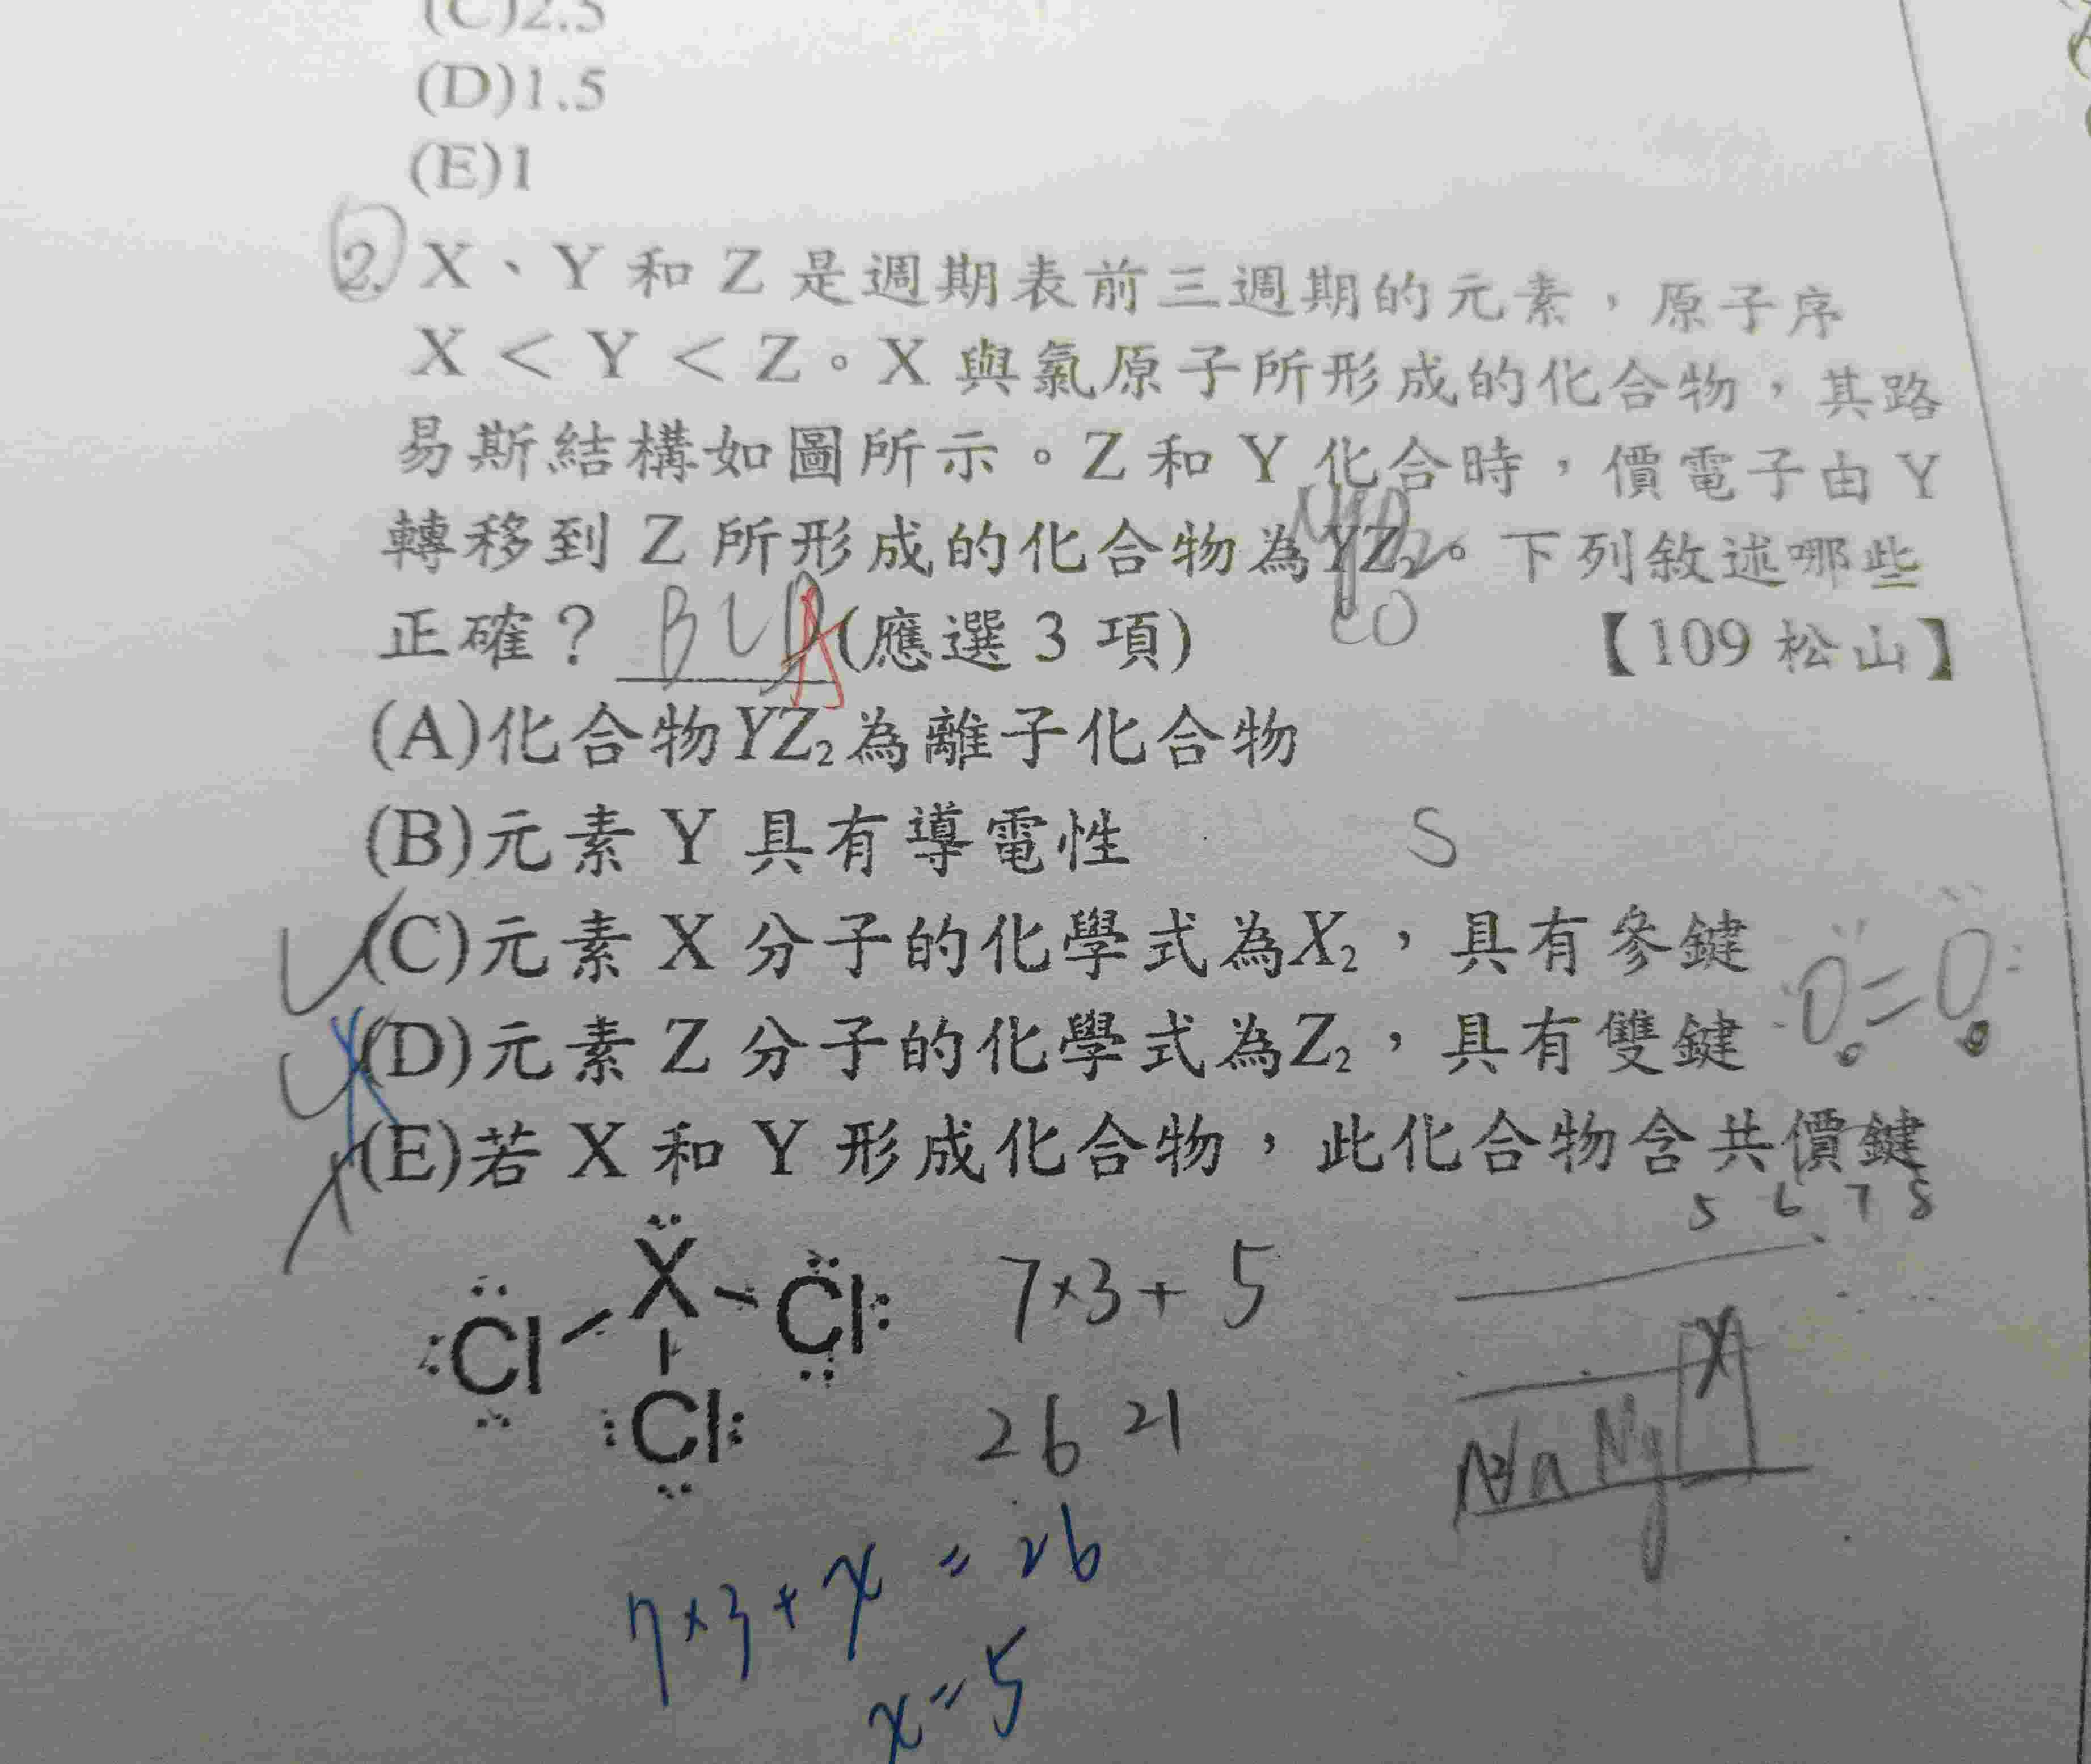 (C)2.5
(D)1.5
(E)1
2. X、Y 和 Z 是週期表前三週期的元素，原子序
X < Y < Z。X 與氯原子所形成的化合物，其路
易斯結構如圖所示。Z 和 Y 化合時，價電子由 Y
轉移到 Z 所形成的化合物為YZ₂。下列敘述哪些
正確？ BC A (應選 3 項) 【109 松山】
(A)化合物YZ₂為離子化合物
(B)元素 Y 具有導電性
S
(C)元素 X 分子的化學式為X₂，具有參鍵
(D)元素 Z 分子的化學式為Z₂，具有雙鍵
O=O
(E)若 X 和 Y 形成化合物，此化合物含共價鍵
5 6 7 8
X
Cl Cl
Cl
7×3+ 5
26 21
X
Na Mg
7×3+x = 26
x=5